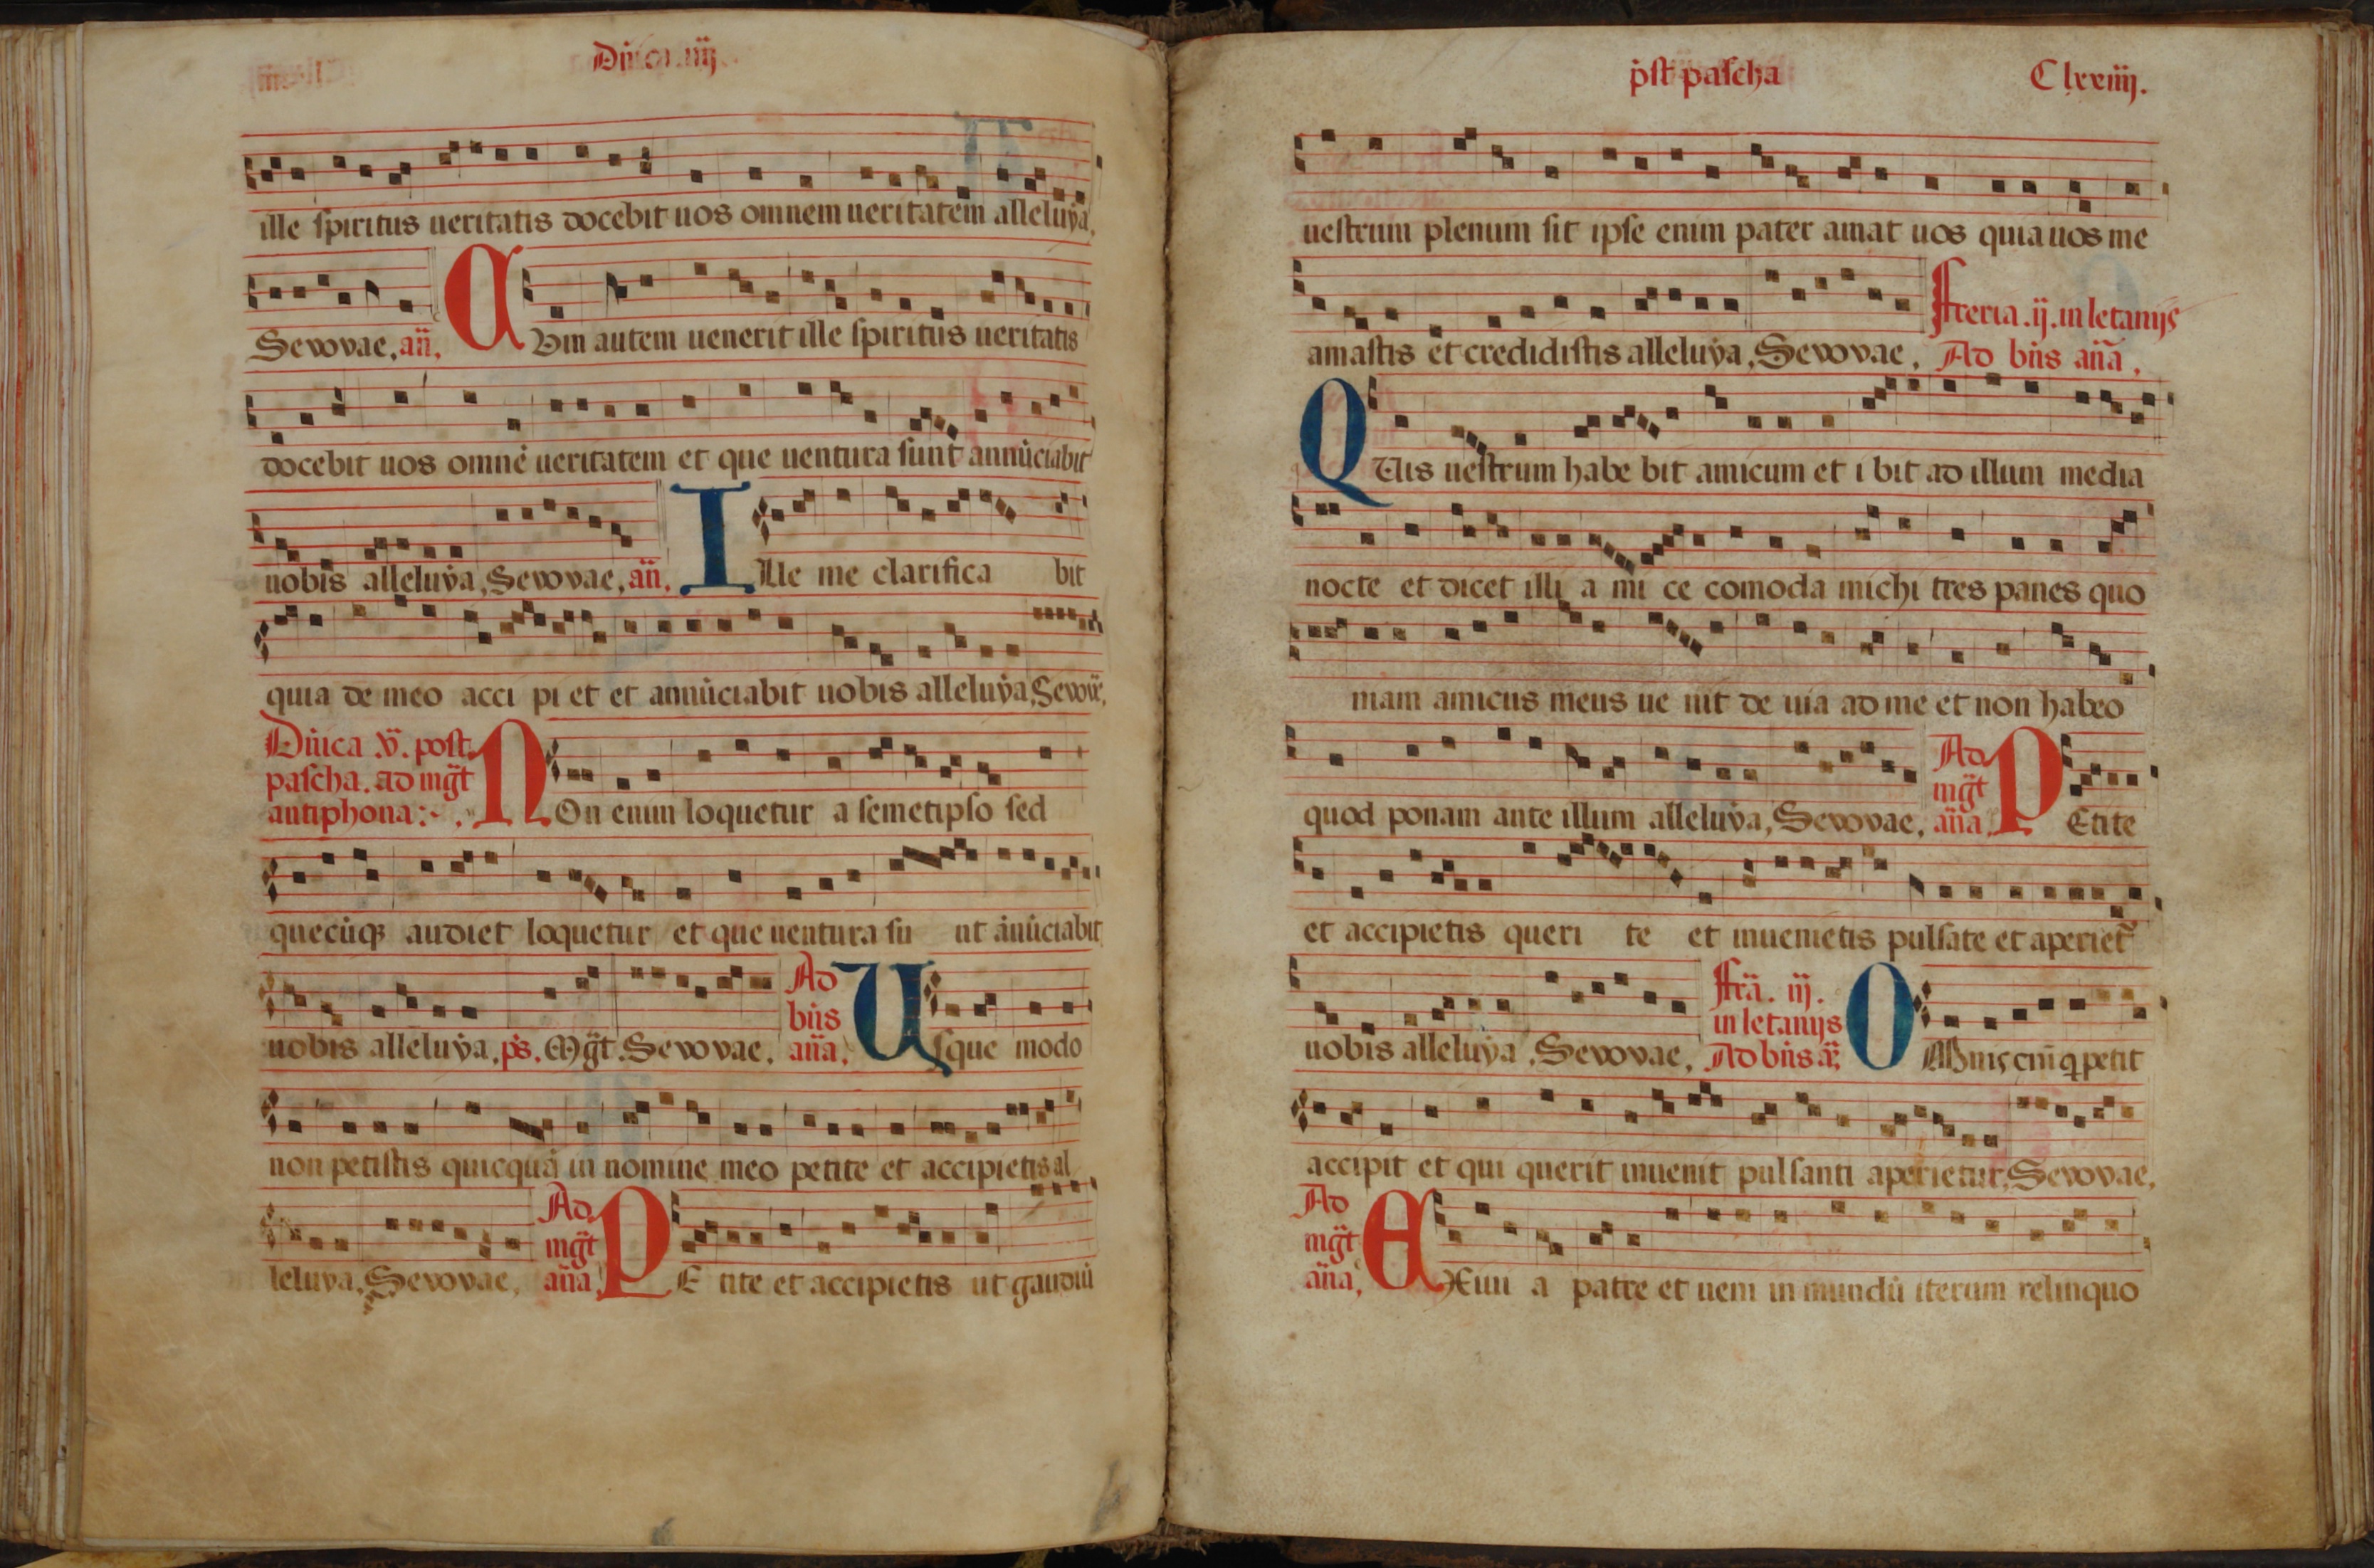 Dn̄ica iiij
ille spiritus ueritatis docebit uos omnem ueritatem alleluya,
Seuouae, an̄, Cum autem uenerit ille spiritus ueritatis
docebit uos omnē ueritatem et que uentura sunt annūciabit
uobis alleluya, Seuouae, an̄, Ille me clarifica bit
quia de meo acci pi et et annūciabit uobis alleluya, Seuouē,
Dn̄ica v̄. post
pascha. ad mḡt
antiphona: NOn enim loquetur a semetipso sed
quecūqꝫ audiet loquetur et que uentura su nt ānūciabit
uobis alleluya, ps̄. Mḡt. Seuouae, Ad bn̄s an̄a, Usque modo
non petistis quicquā in nomine meo petite et accipietis al
leluya, Seuouae, Ad mḡt an̄a, PE tite et accipietis ut gaudiū
p̄st pascha
Clxxiiij.
uestrum plenum sit ipse enim pater amat uos quia uos me
amastis et credidistis alleluya, Seuouae, Feria .ij. in letanijs
Ad bn̄s an̄a,
QUis uestrum habe bit amicum et i bit ad illum media
nocte et dicet illi a mi ce comoda michi tres panes quo
niam amicus meus ue nit de uia ad me et non habeo
quod ponam ante illum alleluya, Seuouae, Ad mḡt an̄a, PEtite
et accipietis queri te et inuenietis pulsate et aperiet̄
uobis alleluya, Seuouae, Fr̄a. iij. in letanijs Ad bn̄s ā, OMnis eni̅ q̄ petit
accipit et qui querit inuenit pulsanti aperietur, Seuouae,
Ad mḡt an̄a, EXiui a patre et ueni in mundū iterum relinquo